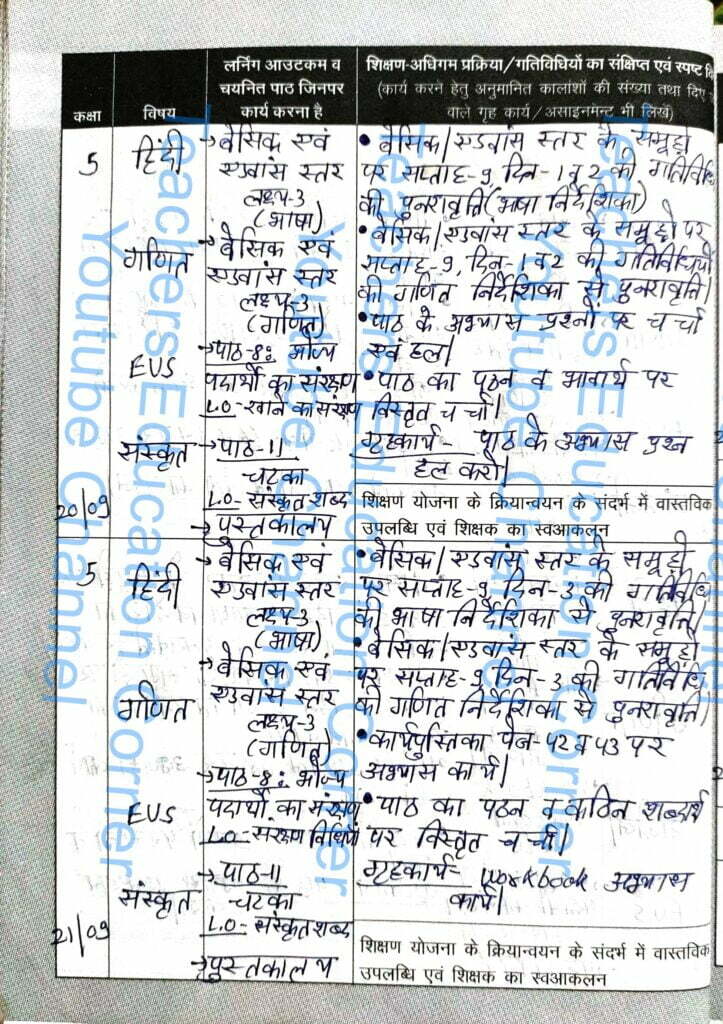 कक्षा
विषय
लर्निंग आउटकम व
चयनित पाठ जिनपर
कार्य करना है
शिक्षण-अधिगम प्रक्रिया/गतिविधियों का संक्षिप्त एवं स्पष्ट
(कार्य करने हेतु अनुमानित कालांशों की संख्या तथा दिए
वाले गृह कार्य/असाइनमेन्ट भी लिखें)
5
हिंदी
→ बेसिक एवं
एडवांस स्तर
लक्ष्य-3
(भाषा)
• बेसिक/एडवांस स्तर के समूहों
पर सप्ताह-9, दिन-1 व 2 की गतिविधि
की पुनरावृत्ति (भाषा निर्देशिका)
गणित
→ बेसिक एवं
एडवांस स्तर
लक्ष्य-3
(गणित)
• बेसिक/एडवांस स्तर के समूहों पर
सप्ताह-9, दिन-1 व 2 की गतिविधियों
की गणित निर्देशिका से पुनरावृत्ति।
EVS
→ पाठ-8: भोज्य
पदार्थों का संरक्षण
L.O- खाने का संरक्षण
• पाठ के अभ्यास प्रश्नों पर चर्चा
एवं हल।
संस्कृत
→ पाठ-11
चटका
L.O- संस्कृत शब्द
→ पुस्तकालय
• पाठ का पठन व भावार्थ पर
विस्तृत चर्चा।
गृहकार्य- पाठ के अभ्यास प्रश्न
हल करो।
20/09
शिक्षण योजना के क्रियान्वयन के संदर्भ में वास्तविक
उपलब्धि एवं शिक्षक का स्वआकलन
5
हिंदी
→ बेसिक एवं
एडवांस स्तर
लक्ष्य-3
(भाषा)
• बेसिक/एडवांस स्तर के समूहों
पर सप्ताह-9, दिन-3 की गतिविधि
की भाषा निर्देशिका से पुनरावृत्ति।
गणित
→ बेसिक एवं
एडवांस स्तर
लक्ष्य-3
(गणित)
• बेसिक/एडवांस स्तर के समूहों
पर सप्ताह-9 दिन-3 की गतिविधि
की गणित निर्देशिका से पुनरावृत्ति।
EVS
→ पाठ-8: भोज्य
पदार्थों का संरक्षण
L.O- संरक्षण विधियाँ
• कार्यपुस्तिका पेज-42 व 43 पर
अभ्यास कार्य।
संस्कृत
→ पाठ-11
चटका
L.O- संस्कृत शब्द
→ पुस्तकालय
• पाठ का पठन व कठिन शब्दार्थ
पर विस्तृत चर्चा।
गृहकार्य- workbook अभ्यास
कार्य।
21/09
शिक्षण योजना के क्रियान्वयन के संदर्भ में वास्तविक
उपलब्धि एवं शिक्षक का स्वआकलन
Teachers Education Corner
Youtube Channel
Teachers Education Corner
Youtube Channel
Teachers Education Corner